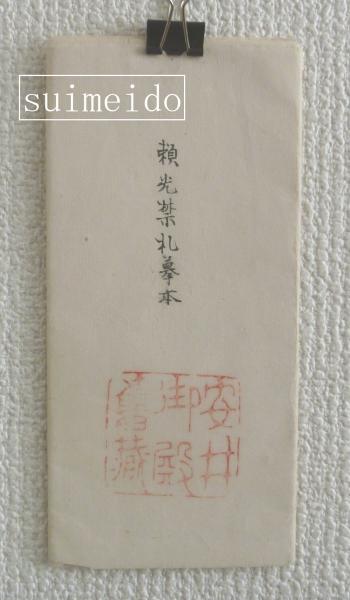 suimeido
頼光禁札摹本
安井
御殿
舊藏